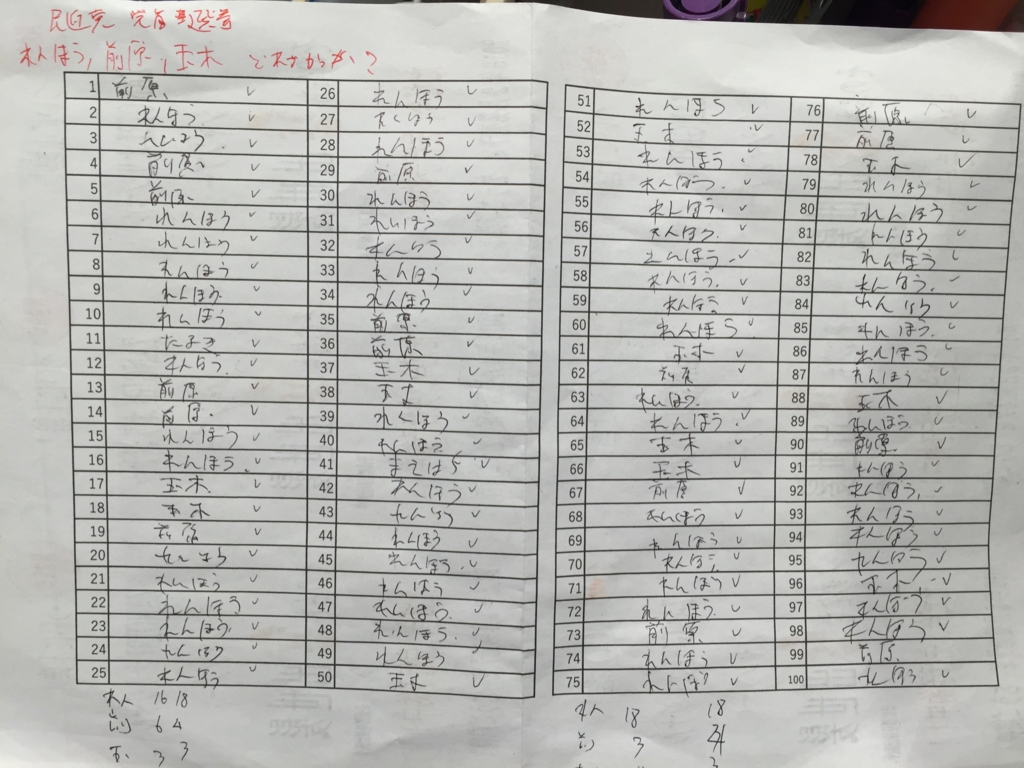 民進党 党首選
れんほう, 前原, 玉木 どれがいい?
1 前原
2 れんほう
3 れんほう
4 前原
5 前原
6 れんほう
7 れんほう
8 れんほう
9 れんほう
10 れんほう
11 たまき
12 れんほう
13 前原
14 前原
15 れんほう
16 れんほう
17 玉木
18 玉木
19 前原
20 れんほう
21 れんほう
22 れんほう
23 れんほう
24 れんほう
25 れんほう
26 れんほう
27 れんほう
28 れんほう
29 前原
30 れんほう
31 れんほう
32 れんほう
33 れんほう
34 れんほう
35 前原
36 前原
37 玉木
38 玉木
39 れんほう
40 れんほう
41 まえはら
42 れんほう
43 れんほう
44 れんほう
45 れんほう
46 れんほう
47 れんほう
48 れんほう
49 れんほう
50 玉木
51 れんほう
52 玉木
53 れんほう
54 れんほう
55 れんほう
56 れんほう
57 れんほう
58 れんほう
59 れんほう
60 れんほう
61 玉木
62 前原
63 れんほう
64 れんほう
65 玉木
66 玉木
67 前原
68 れんほう
69 れんほう
70 れんほう
71 れんほう
72 れんほう
73 前原
74 れんほう
75 れんほう
76 前原
77 前原
78 玉木
79 れんほう
80 れんほう
81 れんほう
82 れんほう
83 れんほう
84 れんほう
85 れんほう
86 れんほう
87 れんほう
88 玉木
89 れんほう
90 前原
91 れんほう
92 れんほう
93 れんほう
94 れんほう
95 れんほう
96 玉木
97 れんほう
98 れんほう
99 前原
100 れんほう
れん 16 18
前 6 4
玉 3 3
れん 18 18
前 3
3